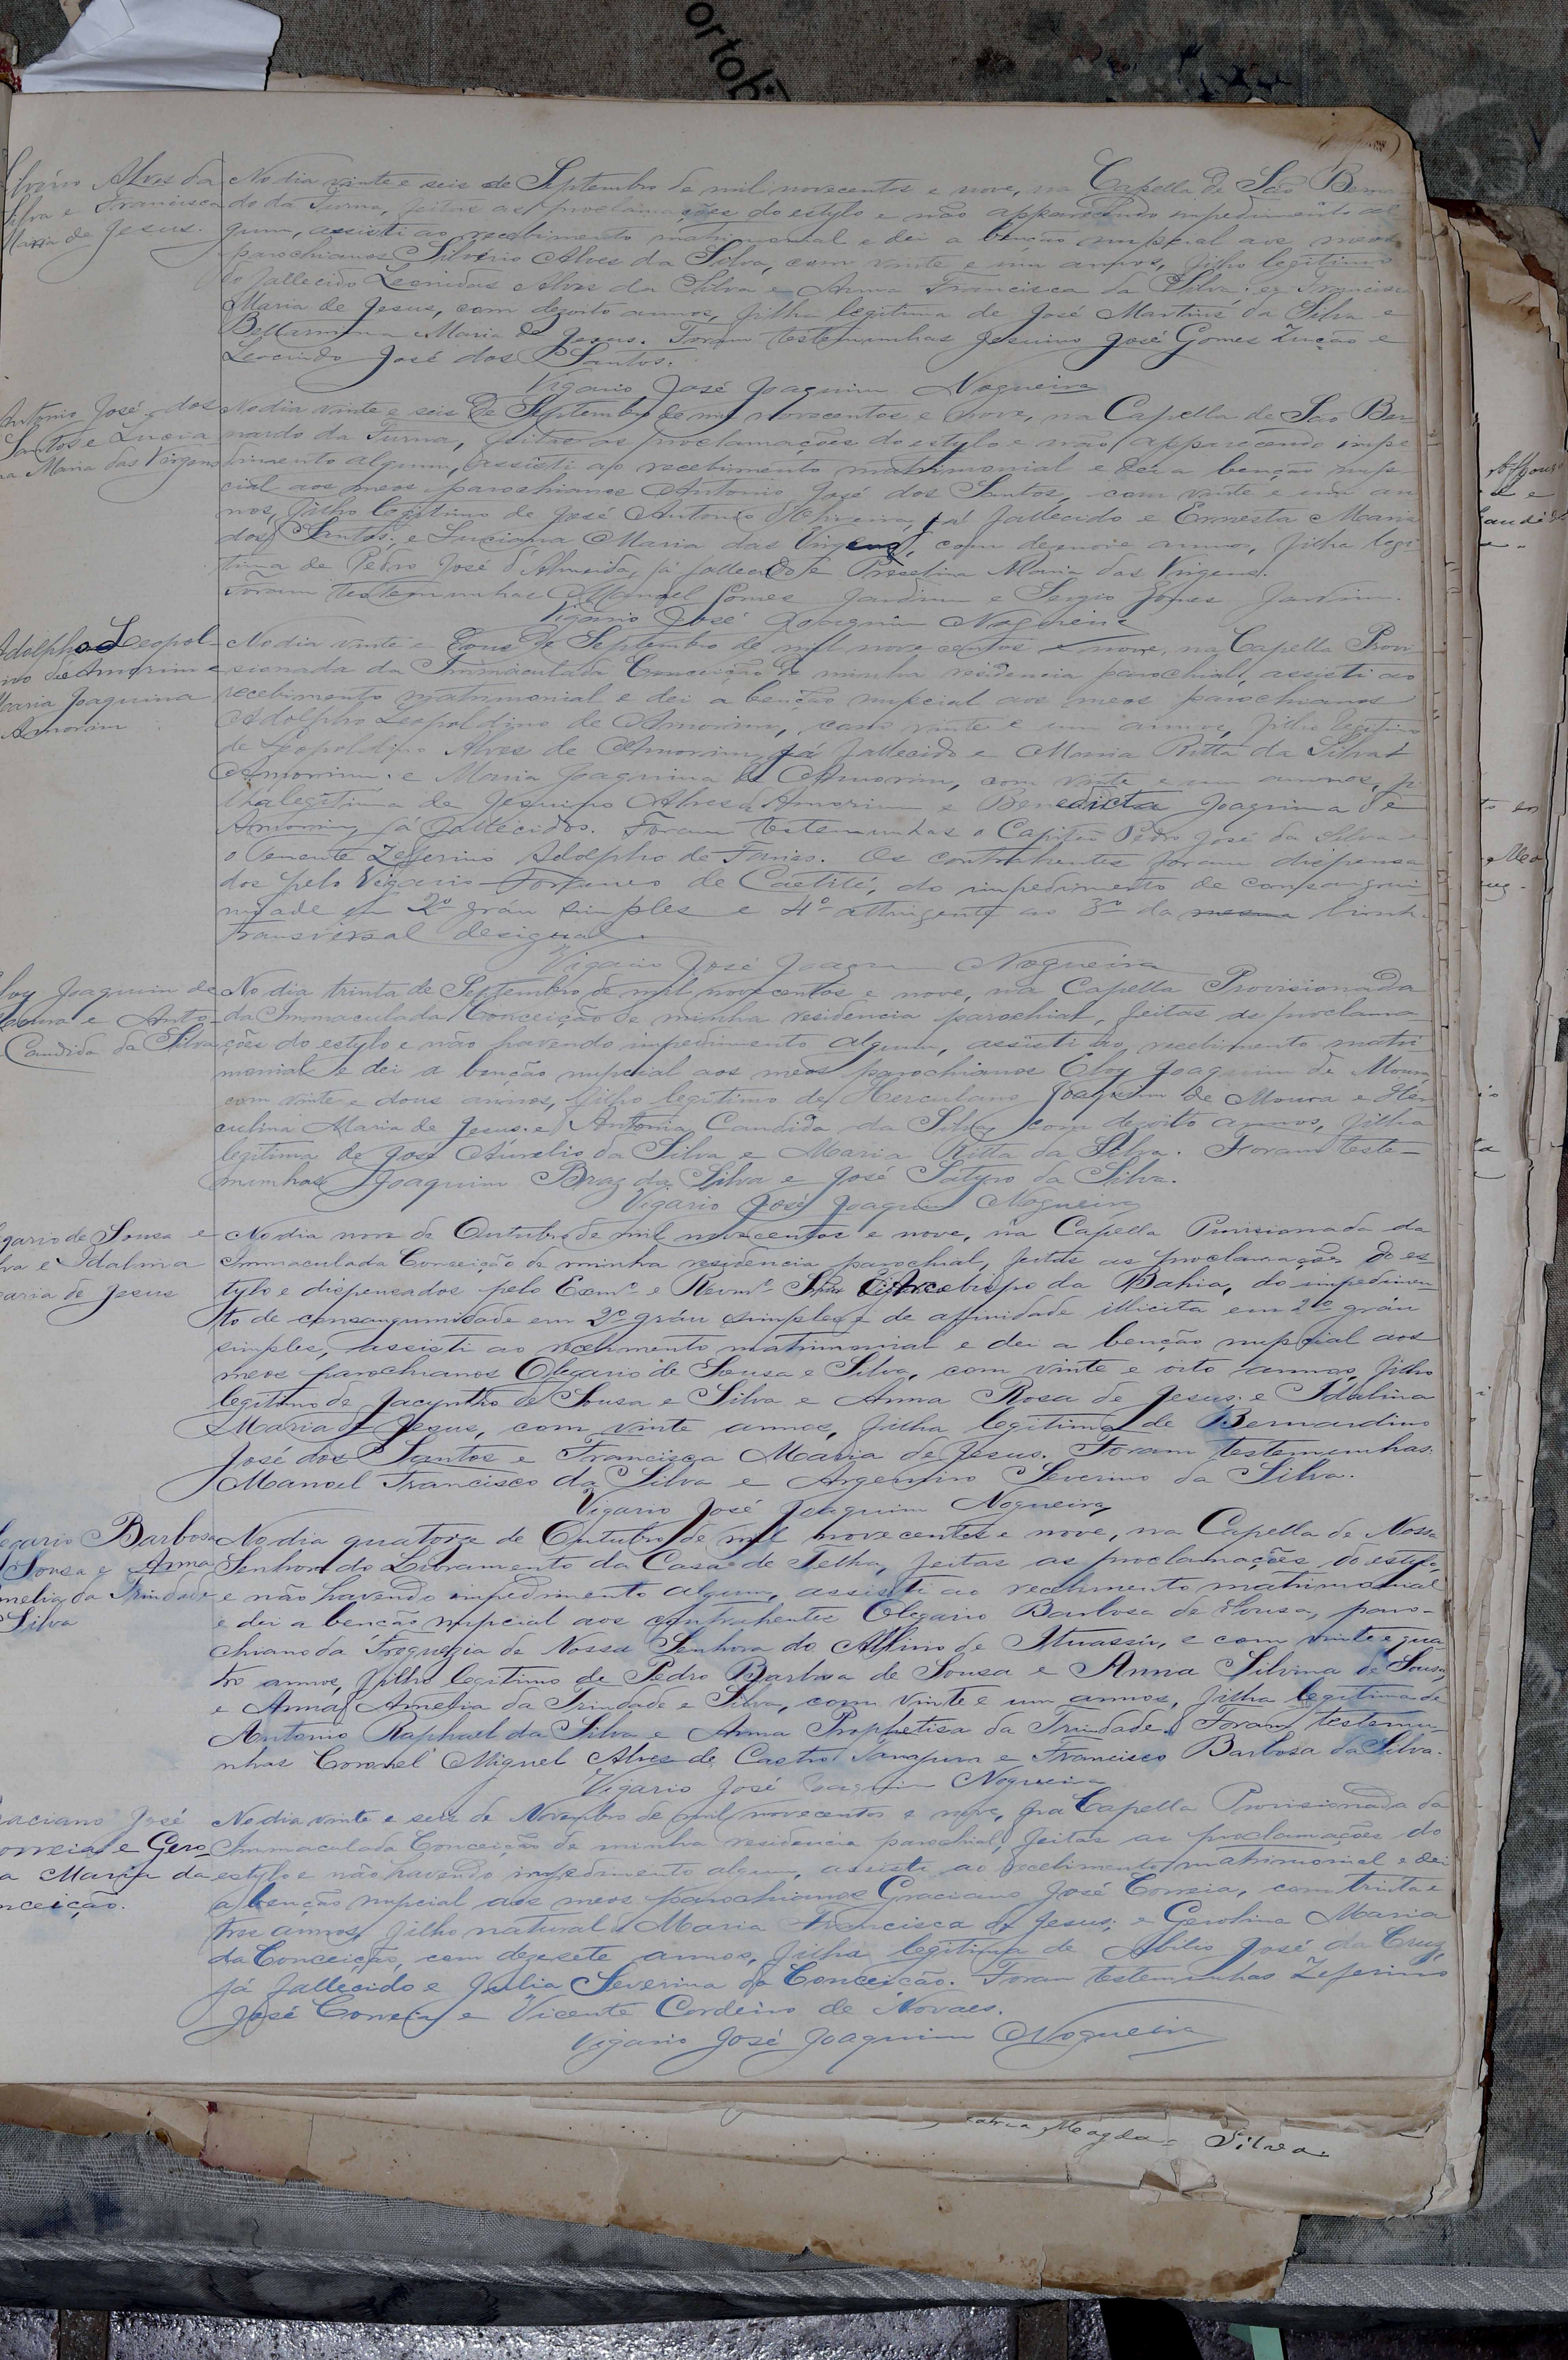 Silverio Alves da
Silva e Francisca
Maria de Jesus.
No dia vinte e seis de Septembro de mil novecentos e nove, na Capella de São Berna
do da Furna, feitas as proclamações do estylo e não apparecendo impedimento al
gum, assisti ao recebimento matrimonial e dei a benção nupcial aos meos
parochianos Silverio Alves da Silva, com vinte e um annos, filho legitimo
do fallecido Leonidas Alves da Silva e Anna Francisca da Silva: e Francisca
Maria de Jesus, com dezoito annos, filha legitima de José Martins da Silva e
Bellarmina Maria de Jesus. Foram testemunhas Jesuino José Gomes Lução e
José dos Santos.
Vigario José Joaquim Nogueira
Antonio José dos
Santos e Lucia
na Maria das Virgens
No dia vinte e seis de Septembro de mil novecentos e nove, na Capella de São Ber
nardo da Furna, feitas as proclamações do estylo e não apparecendo impe
dimento algum, assisti ao recebimento matrimonial e dei a benção nup
cial aos meos parochianos Antonio José dos Santos, com vinte e um an
nos, filho legitimo de José Antonio d'Oliveira, já fallecido e Ernesta Maria
dos Santos; e Luciana Maria das Virgens, com dezenove annos, filha legi
tima de Pedro José d'Almeida, já fallecido e Maria das Virgens.
Foram testemunhas Manoel Gomes Jardim e Sergio Gomes Jardim.
Vigario José Joaquim Nogueira
Adolpho Leopol
ino de Amorim e
Maria Joaquina
Amorim
No dia vinte e nove de Septembro de mil nove centos e nove, na Capella Provi
sionada da Immaculada Conceição de minha residencia parochial, assisti ao
recebimento matrimonial e dei a benção nupcial aos meos parochianos
Adolpho Leopoldino de Amorim, com vinte e um annos, filho legitimo
de Leopoldino Alves de Amorim, já fallecido e Maria Ritta da Silva
Amorim: e Maria Joaquina de Amorim, com vinte e um annos, fi
lha legitima de Jesuino Alves d'Amorim e Benedicta Joaquina de
Amorim, já fallecidos. Foram testemunhas o Capitão Pedro José da Silva e
o Tenente Zeferino Adolpho de Farias. Os contrahentes foram dispensa
dos pelo Vigario Foraneo de Caetité, do impedimento de consangui
nidade em 2º gráu simples e 4º attingente ao 3º da mesma linha
transversal desigual.
Vigario José Joaqm Nogueira
loy Joaquim de
Moura e Anto-
Candida da Silva
No dia trinta de Septembro de mil novecentos e nove, na Capella Provisionada
da Immaculada Conceição de minha residencia parochial, feitas as proclama
ções do estylo e não havendo impedimento algum, assisti ao recebimento matri
monial e dei a benção nupcial aos meos parochianos Eloy Joaquim de Moura
com vinte e dous annos, filho legitimo de Herculano Joaquim de Moura e Her
culina Maria de Jesus: e Antonia Candida da Silva, com dezoito annos, filha
legitima de José Aurelio da Silva e Maria Ritta da Silva. Foram teste-
munhas Joaquim Braz da Silva e José Satyro da Silva.
Vigario José Joaquim Nogueira
gario de Sousa e
lva e Idalina
aria de Jesus
No dia nove de Outubro de mil novecentos e nove, na Capella Provisionada da
Immaculada Conceição de minha residencia parochial, feitas as proclamações do es-
tylo e dispensados pelo Exmº e Revmº Snr Arcebispo da Bahia, do impedimen-
to de consanguinidade em 2º gráu simples e de affinidade illicita em 2º gráu
simples, assisti ao recebimento matrimonial e dei a benção nupcial aos
meos parochianos Olegario de Sousa e Silva, com vinte e oito annos, filho
legitimo de Jacyntho de Sousa e Silva e Anna Rosa de Jesus: e Idalina
Maria de Jesus, com vinte annos, filha legitima de Bernardino
José dos Santos e Francisca Maria de Jesus. Foram testemunhas:
Manoel Francisco da Silva e Argemiro Severino da Silva.
Vigario José Joaquim Nogueira
legario Barbosa
Sousa e Anna
melia da Trindade
Silva
No dia quatorze de Outubro de mil novecentos e nove, na Capella de Nossa
Senhora do Livramento da Casa de Telha, feitas as proclamações do estylo,
e não havendo impedimento algum, assisti ao recebimento matrimonial
e dei a benção nupcial aos contrahentes Olegario Barbosa de Sousa, paro-
chiano da Freguezia de Nossa Senhora do Allivio de Ituassú, e com vinte e qua-
tro annos, filho legitimo de Pedro Barbosa de Sousa e Anna Silvina de Sousa,
e Anna Amelia da Trindade e Silva, com vinte e um annos, filha legitima de
Antonio Raphael da Silva e Anna Prophetisa da Trindade. Foram testemu-
nhas Coronel Miguel Alves de Castro Tanajura e Francisco Barbosa da Silva.
Vigario José Joaquim Nogueira
raciano José
orreia e Gero
a Maria da
nceição.
No dia vinte e seis de Novembro de mil novecentos e nove, na Capella Provisionada da
Immaculada Conceição de minha residencia parochial, feitas as proclamações do
estylo e não havendo impedimento algum, assisti ao recebimento matrimonial e dei
a benção nupcial aos meos parochianos Graciano José Correia, com trinta e
tres annos, filho natural de Maria Francisca de Jesus; e Gerolina Maria
da Conceição, com dezesete annos, filha legitima de Abilio José da Cruz,
já fallecido e Julia Severina da Conceição. Foram testemunhas Zeferino
José Correia e Vicente Cordeiro de Novaes.
Vigario José Joaquim Nogueira
Magda Silva